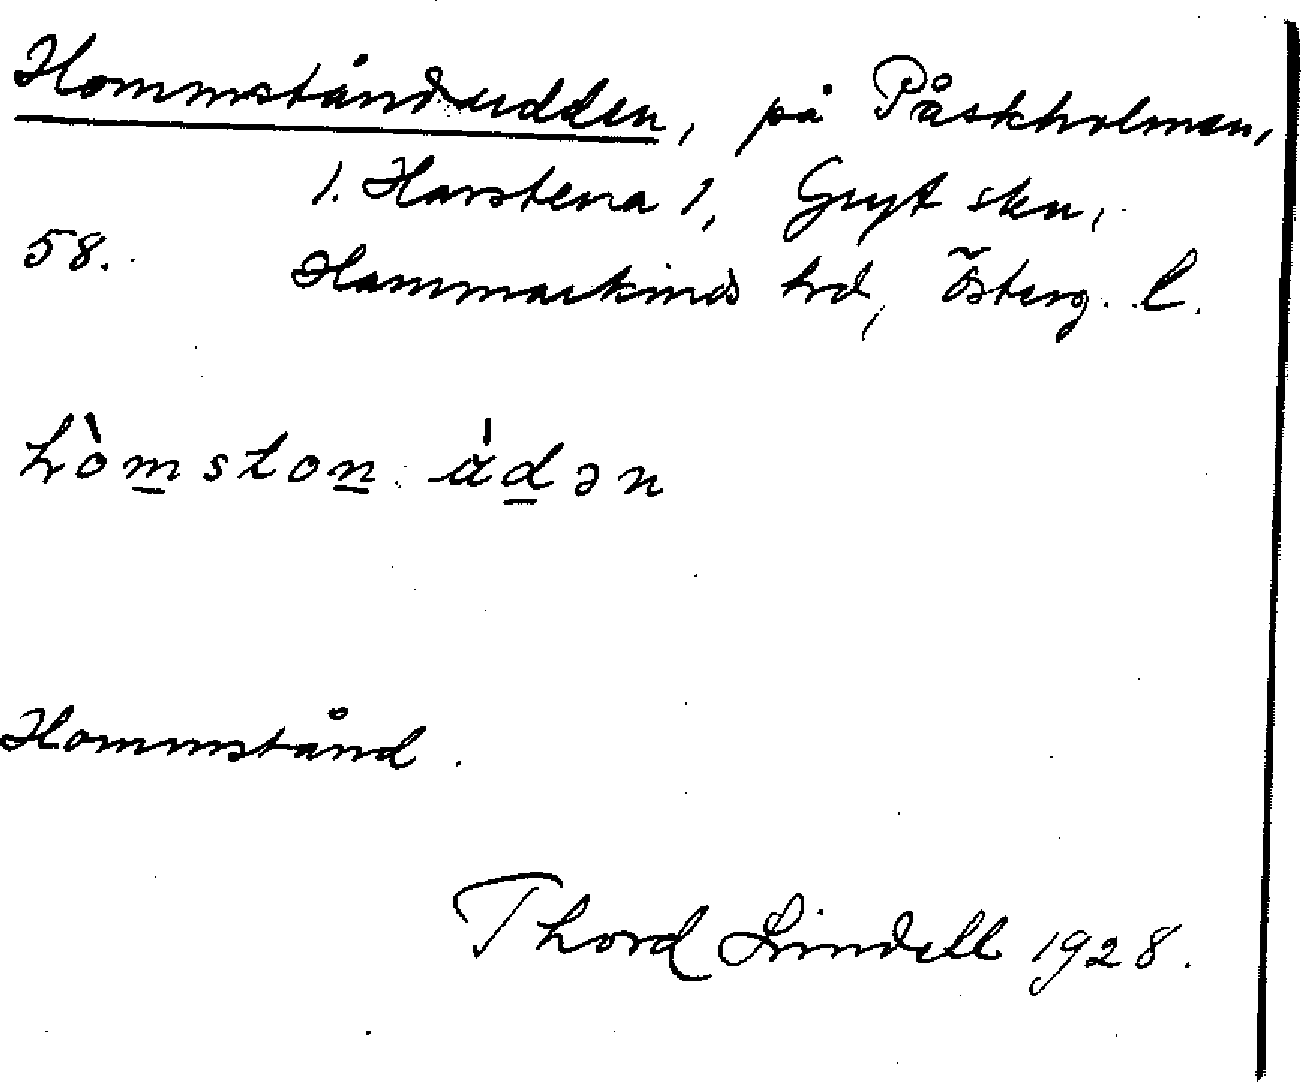 Hommståndudden, på Påskholmen,
1. Harstena 1, Gryt skn,
58. Hammarkinds hrd, Österg. l.
hòmston ádən
Hommstånd.
Thord Lindell 1928.